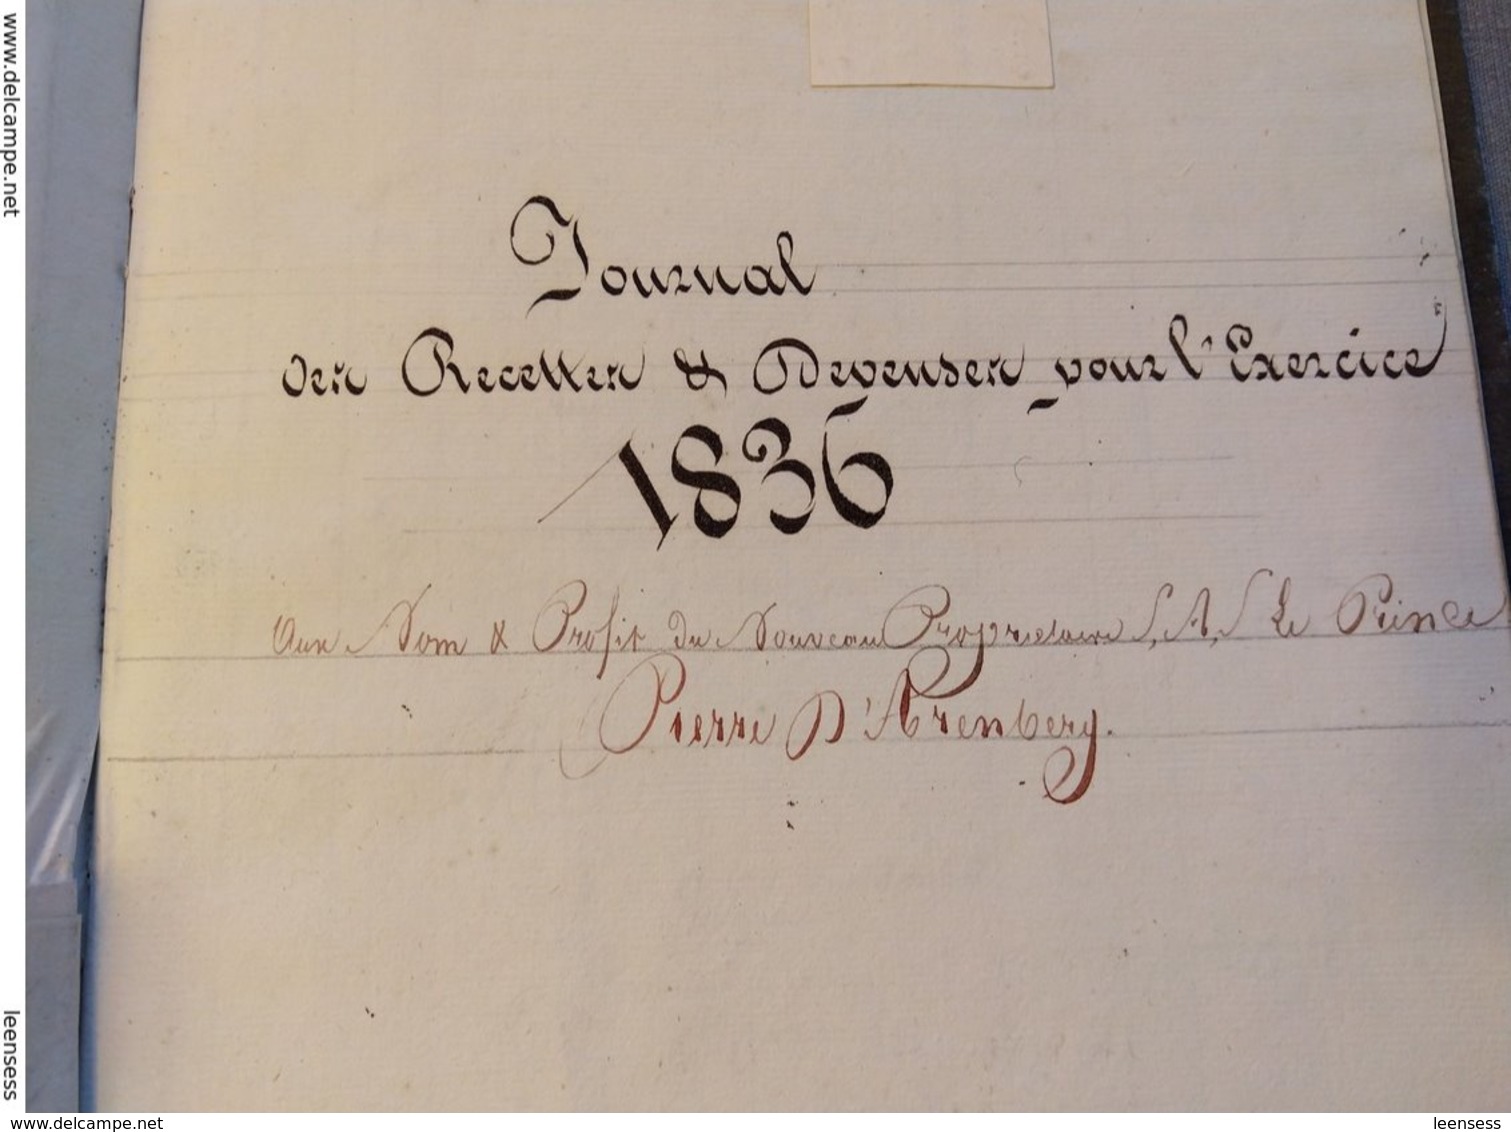 www.delcampe.net
Journal
des Recettes & Depenses pour l'Exercice
1836
Aux Nom & Profit du Nouveau Propriétaire S. A. S Le Prince
Pierre D'Arenberg.
leensess
www.delcampe.net
leensess